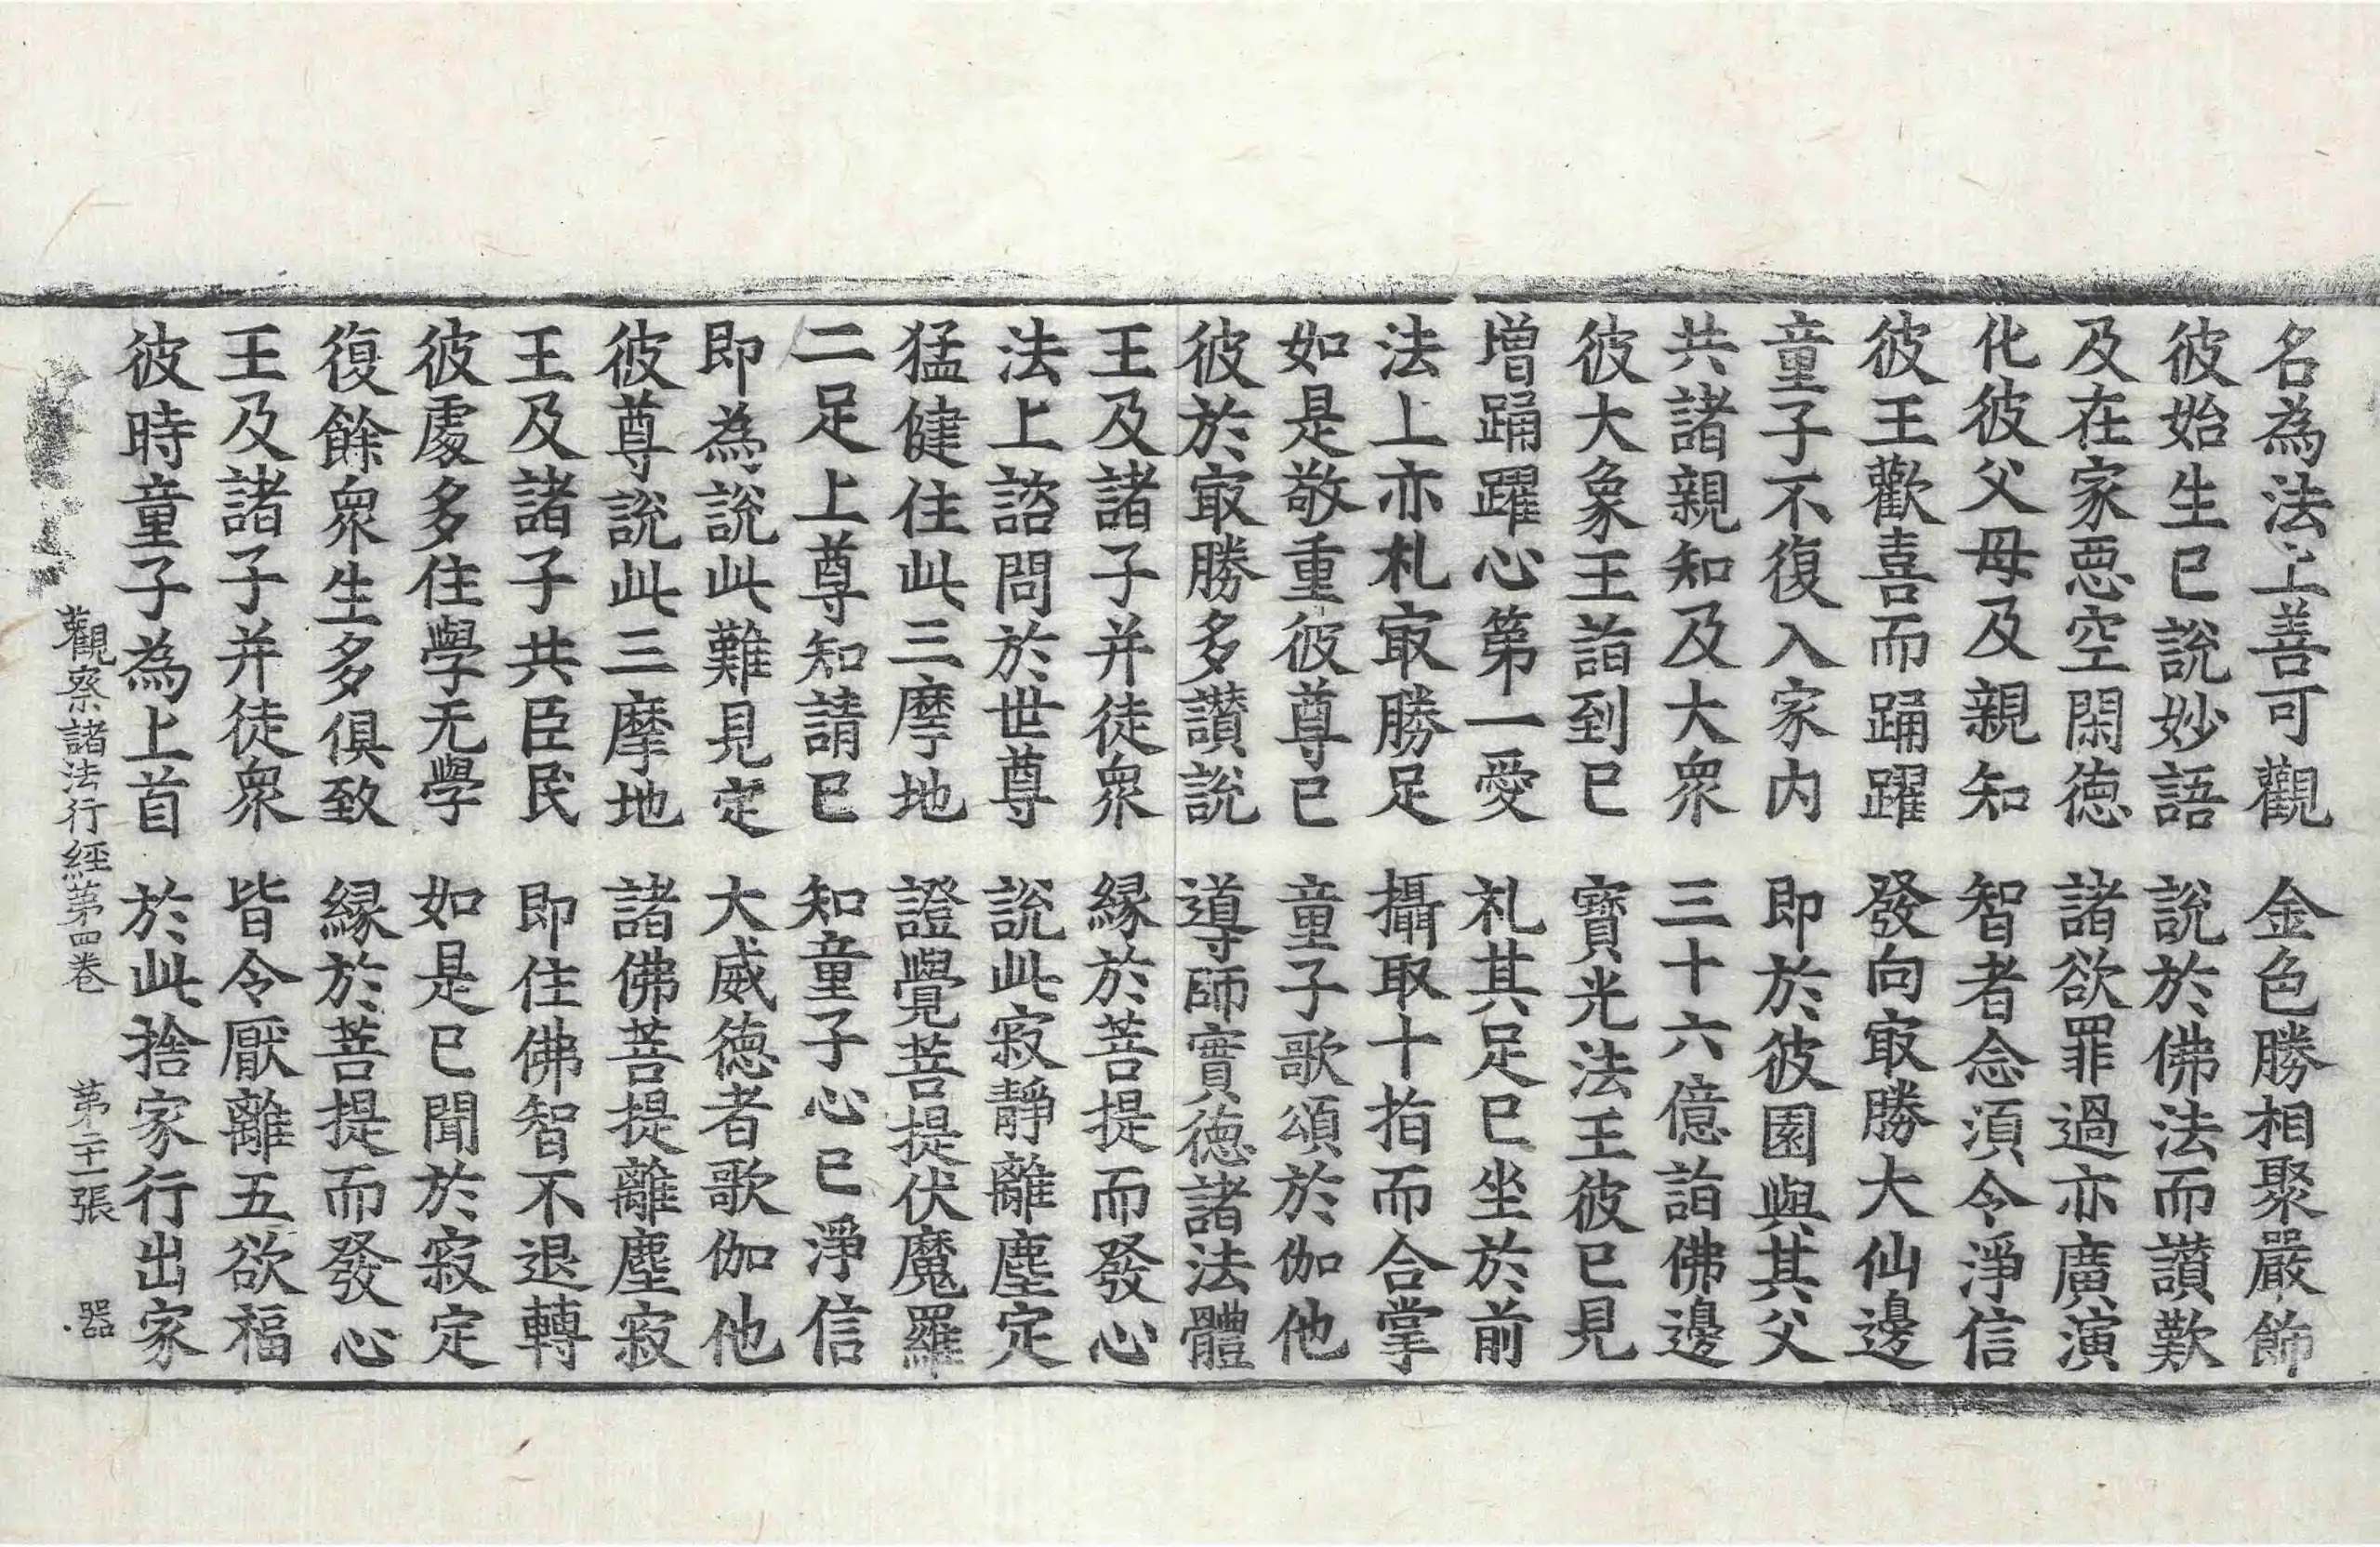 名為法上善可觀　金色勝相聚嚴飾
彼始生已說妙語　說於佛法而讚歎
及在家惡空閑德　諸欲罪過亦廣演
化彼父母及親知　智者念須令淨信
彼王歡喜而踊躍　發向㝡勝大仙邊
童子不復入家内　即於彼園與其父
共諸親知及大衆　三十六億詣佛邊
彼大象王詣到已　寶光法王彼已見
增踊躍心第一愛　礼其足已坐於前
法上亦礼㝡勝足　攝取十指而合掌
如是敬重彼尊已　童子歌頌於伽他
彼於㝡勝多讚說　導師實德諸法體
王及諸子并徒衆　緣於菩提而發心
法上諮問於世尊　說此寂靜離塵定
猛健住此三摩地　證覺菩提伏魔羅
二足上尊知請已　知童子心已淨信
即為說此難見定　大威德者歌伽他
彼尊說此三摩地　諸佛菩提離塵寂
王及諸子共臣民　即住佛智不退轉
彼處多住學无學　如是已聞於寂定
復餘衆生多俱致　緣於菩提而發心
王及諸子并徒衆　皆令厭離五欲福
彼時童子為上首　於此捨家行出家
觀察諸法行經第四卷　第二十一張　器